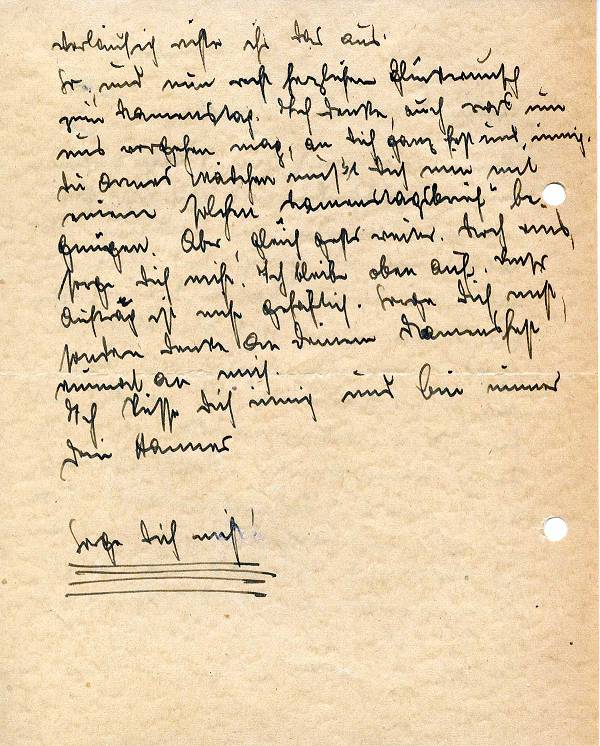 Vorläufig richte ihr das aus.
So, und nun recht herzlichen Glückwunsch
zum Namenstag. Ich denke, auch was um
uns vorgehen mag, an Dich ganz fest und innig.
Du armes Mädchen mußt Dich nun mit
einem solchen „Namenstagsbrief" be-
gnügen. Aber gleich gehts weiter. Doch eins,
sorge Dich nicht! Ich bleibe oben auf. Unser
Auftrag ist nicht gefährlich. Sorge Dich nicht,
sondern denke an Deinem Namensfest
einmal an mich.
Ich küsse Dich innig und bin immer
Dein Hannes
Sorge Dich nicht!